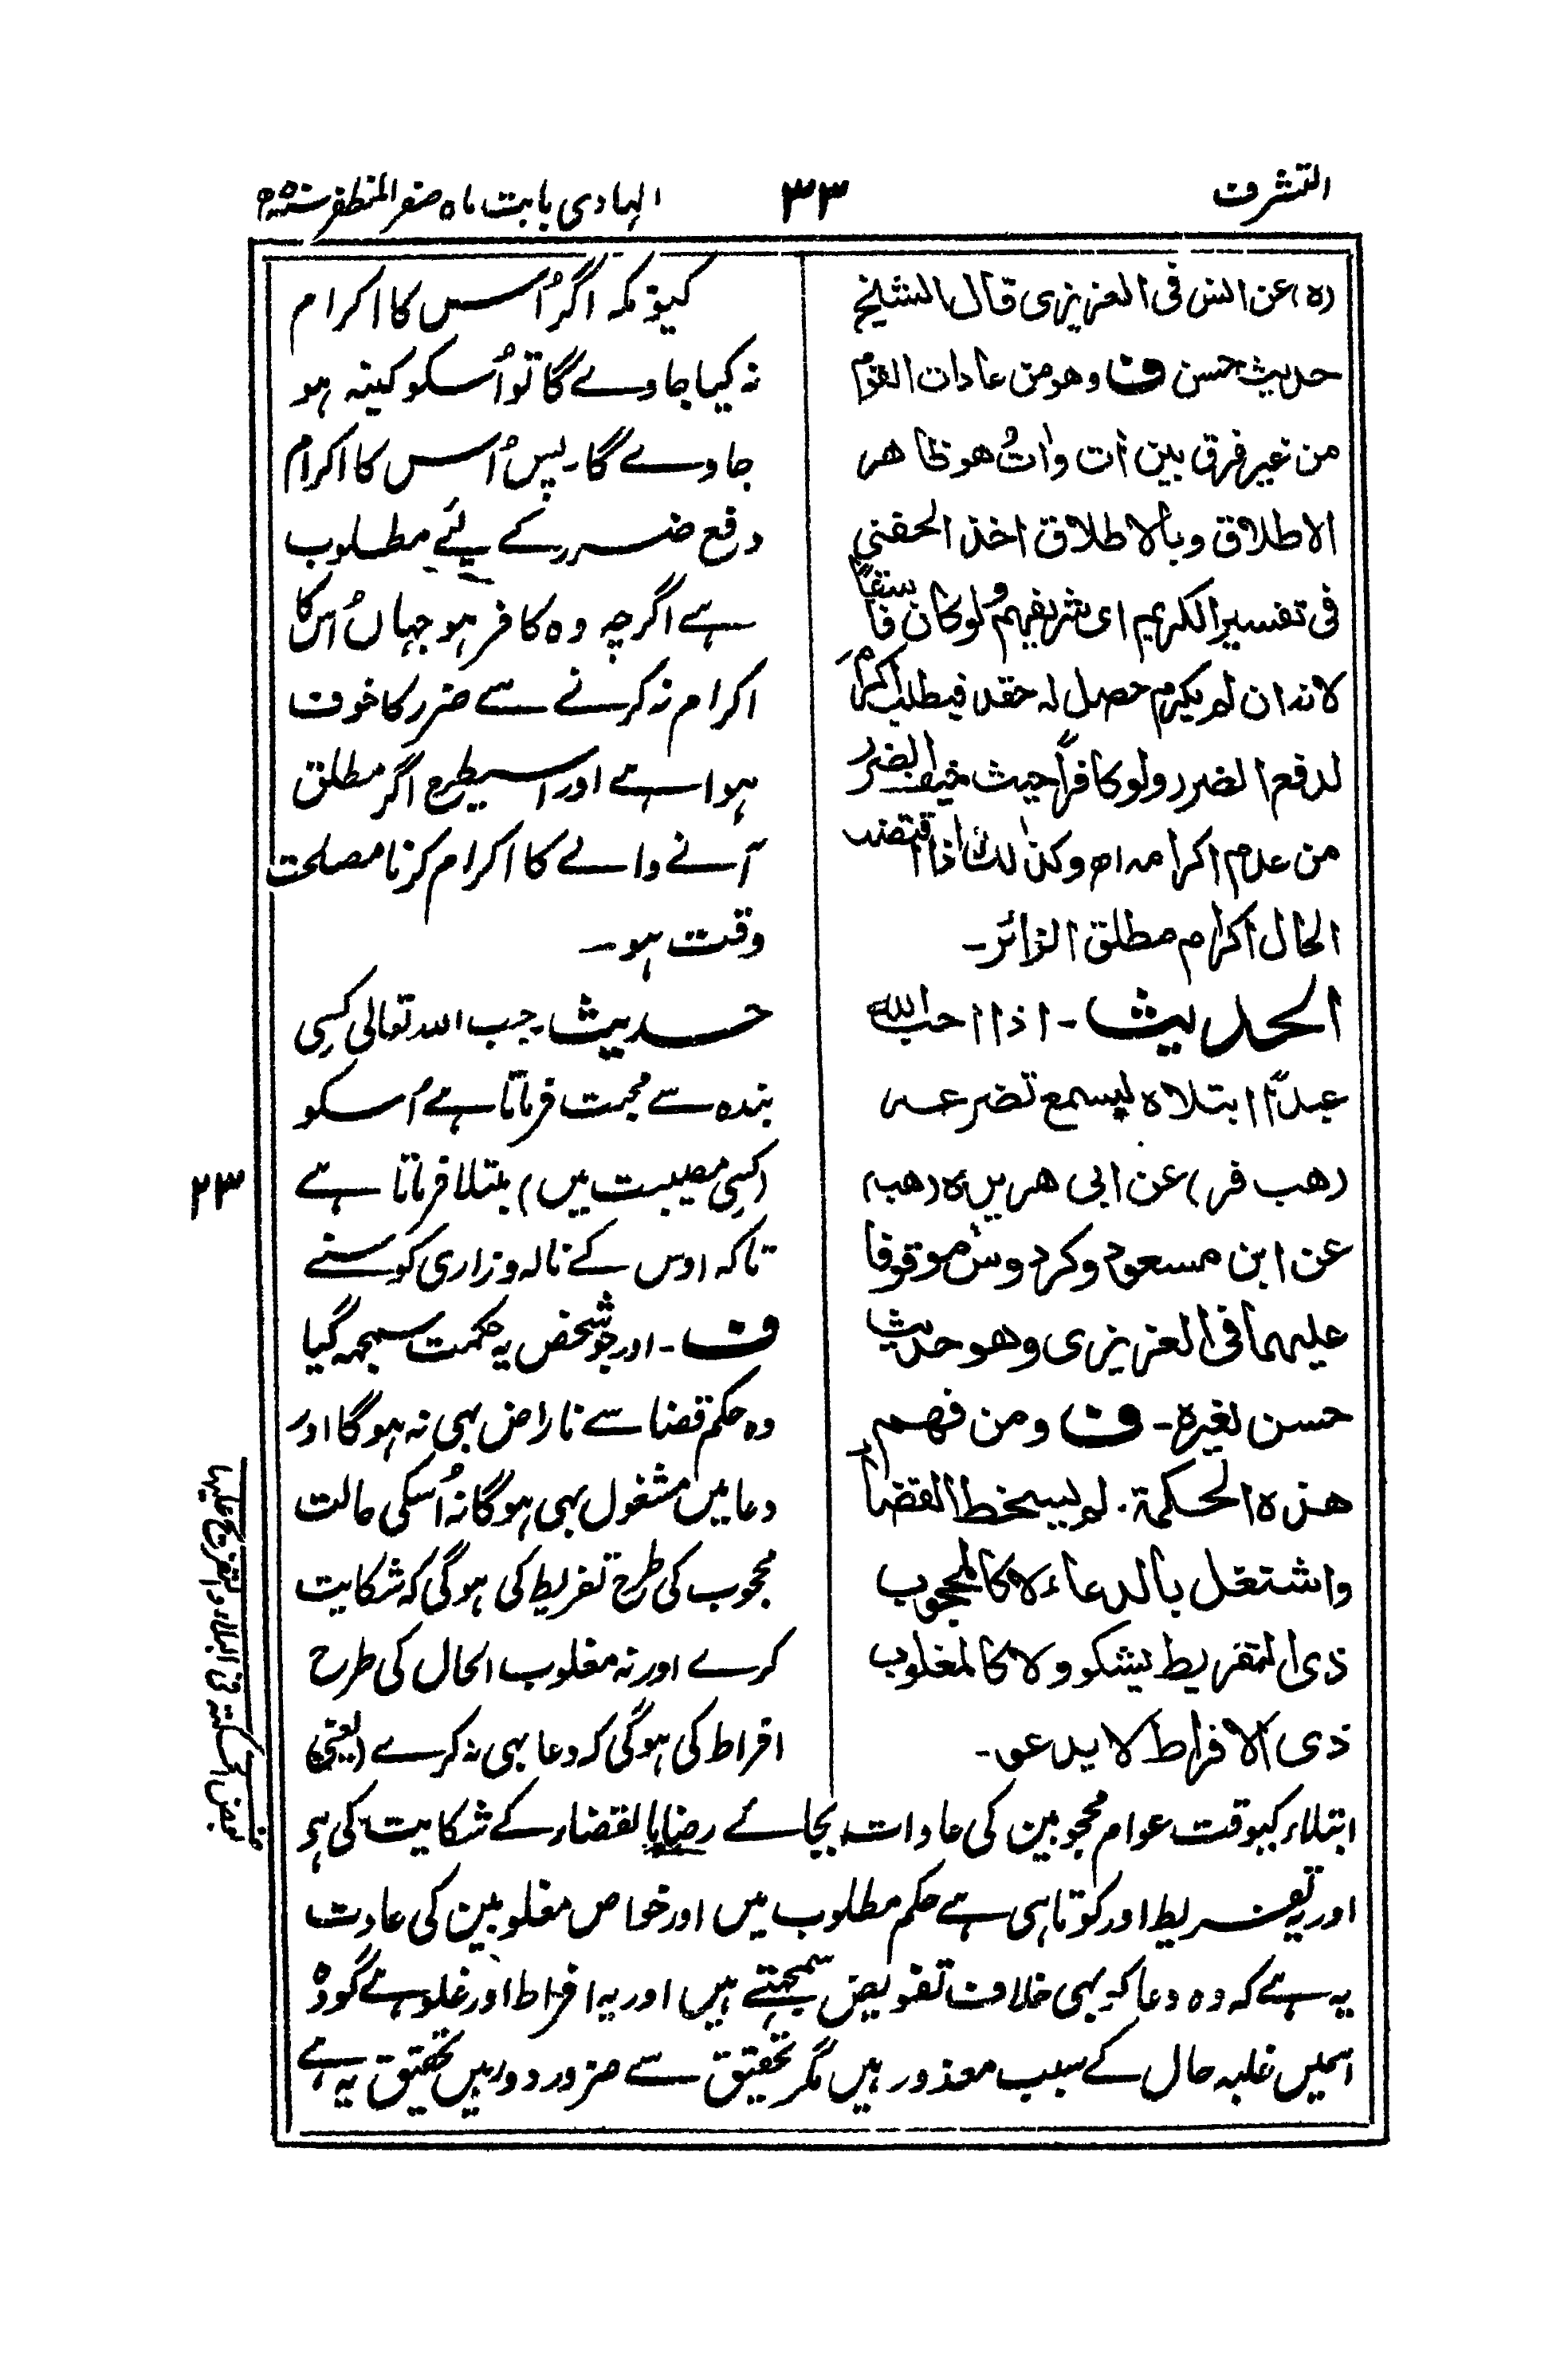 التشرف
۳۳
الہادی بابت ماہ صفر المظفر
(ہ) عن انس فی العزیزی قال الشیخ
حدیث حسن ف وھو من عادات القوم
من غیر فرق بین اٰت واٰتٍ ھو ظاھر
الاطلاق وبالاطلاق اخذ الحفنی
فی تفسیر الکریم ای شریفھم ولو کان فاسقاً
لانہ ان لم یکرم حصل لہ حقد فیطلب اکرامہ
لدفع الضرر ولو کافراً حیث خیف الضرر
من عدم اکرامہ اھ وکذٰلک اذا اقتضت
الحال اکرام مطلق الزائر۔
الحدیث۔ اذا احب اللہ
عبداً ابتلاہ لیسمع تضرعہ
(ھب فر) عن ابی ھریرۃ (ھب)
عن ابن مسعود وکردوس موقوفا
علیھما فی العزیزی وھو حدیث
حسن لغیرہ۔ ف ومن فھم
ھذہ الحکمۃ۔ لم یسخط القضاء
واشتغل بالدعاء لا کالمحجوب
ذی التفریط یشکو ولا کالمغلوب
ذی الافراط لا یدعو۔
کیونکہ اگر اُس کا اکرام
نہ کیا جاوے گا تو اُسکو کینہ ہو
جاوے گا۔ پس اُس کا اکرام
دفع ضرر کے لئے مطلوب
ہے اگرچہ وہ کافر ہو جہاں اُس کا
اکرام نہ کرنے سے ضرر کا خوف
ہوا ہے اور اسیطرح اگر مطلق
آنے والے کا اکرام کرنا مصلحت
وقت ہو۔
حدیث۔ جب اللہ تعالیٰ کسی
بندہ سے محبت فرماتا ہے اُسکو
(کسی مصیبت میں) مبتلا فرماتا ہے
تاکہ اوس کے نالہ و زاری کو سنے
ف۔ اور جو شخص یہ حکمت سمجھ گیا
وہ حکم قضا سے ناراض بھی نہ ہوگا اور
دعا میں مشغول بھی ہوگا نہ اُسکی حالت
محجوب کی طرح تفریط کی ہوگی کہ شکایت
کرے اور نہ مغلوب الحال کی طرح
افراط کی ہوگی کہ دعا بھی نہ کرے (یعنی)
ابتلاء کیوقت عوام محجوبین کی عادات بجائے رضا بالقضاء کے شکایت کی ہے
اور یہ تفریط اور کوتاہی ہے حکم مطلوب میں اور خواص مغلوبین کی عادت
یہ ہے کہ وہ دعا کو بھی خلاف تفویض سمجھتے ہیں اور یہ افراط اور غلو ہے گو وہ
اسمیں غلبہ حال کے سبب معذور ہیں مگر تحقیق سے ضرور دور ہیں تحقیق یہ ہے
۲۳
بعض الحکمۃ فی البلاء